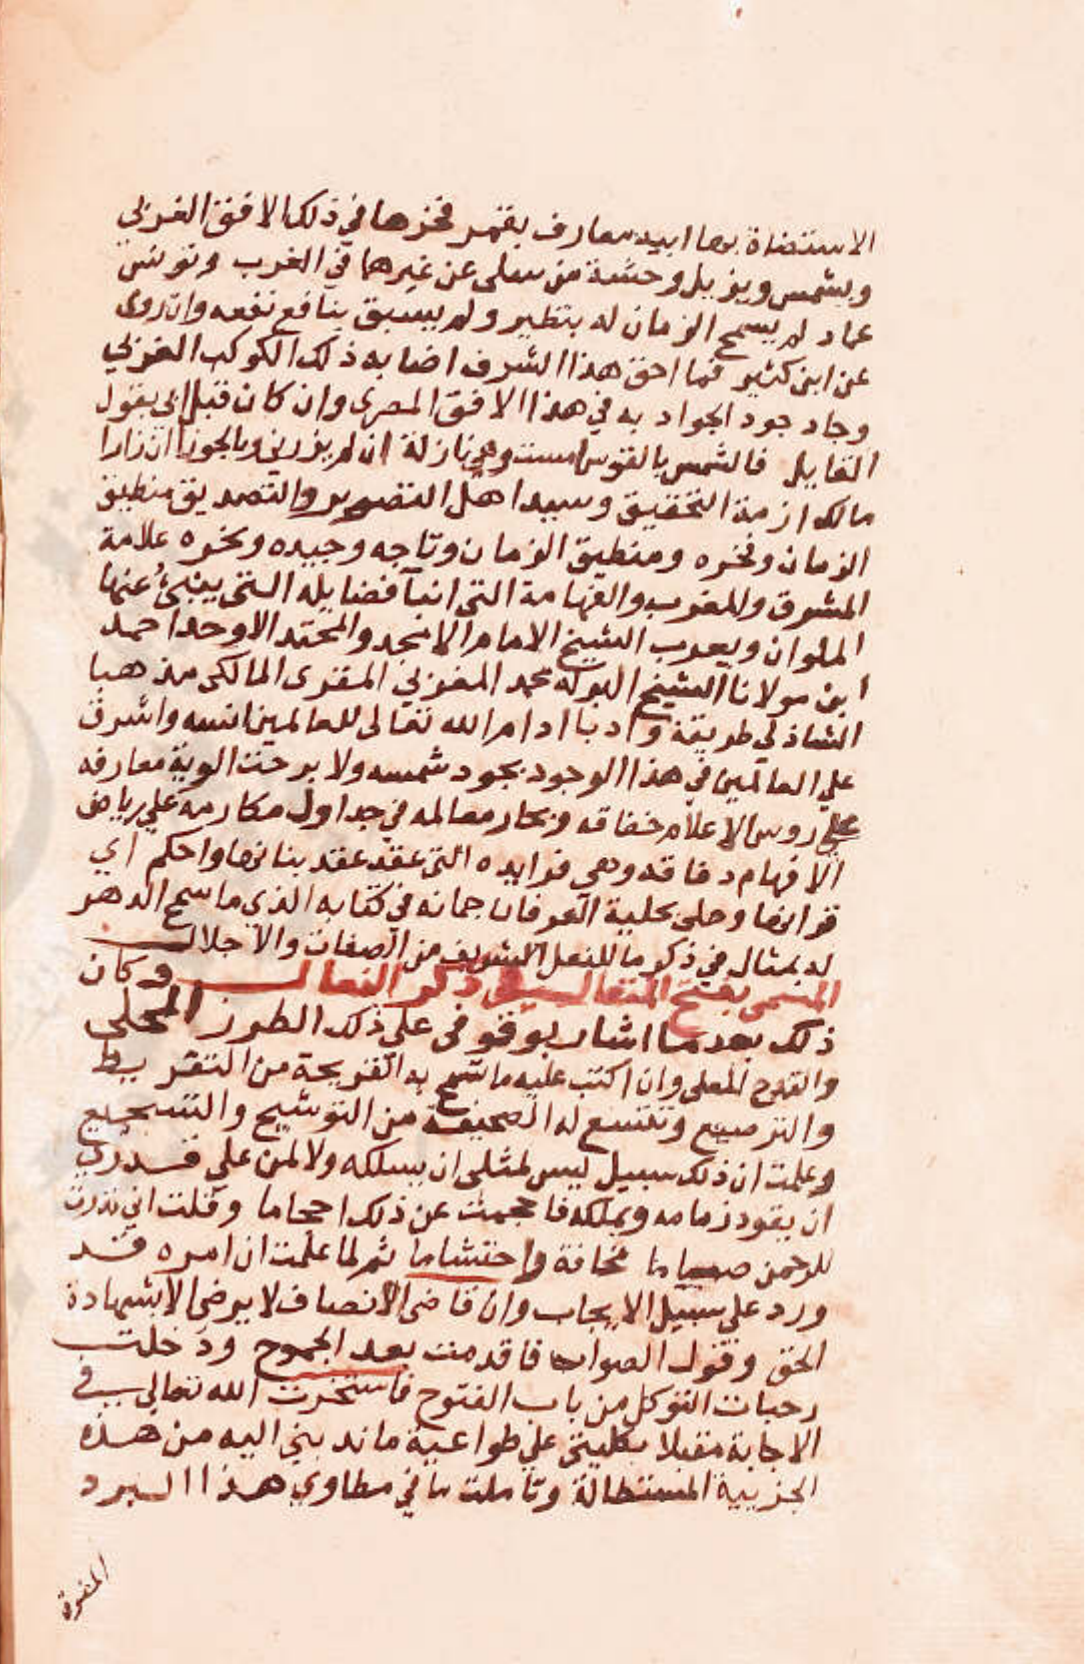 الاستضاة بها ابيد معارف بقمر فخرها في ذلك الافق الغربي
وبشمس ويزيل وحشة من سلى عن غيرها في الغرب وتونس
عماد لم يسمح الزمان له بنظير ولم يسبق بنافع نفعه وان روى
عن ابن كثير فما احق هذا الشرف اضا به ذلك الكوكب الغربي
وجاد جود الجواد به في هذا الافق المصري وان كان قبل الى يقول
القايل فالشمس بالقوس امست وهي نازلة ان لم يزرني وبالجوزا ان زارا
مالك ازمة التحقيق وسيد اهل التصوير والتصديق منطيق
الزمان وفخره ومنطيق الزمان وتاجه وجيده ونحره علامة
المشرق والمغرب والفهامة التي انبا فضايله التي ينبئ عنها
الملوان ويعرب الشيخ الامام الامجد والمحتد الاوحد احمد
ابن مولانا الشيخ البركة محمد المغربي المقري المالكي مذهبا
الشاذلي طريقة وادبا ادام الله تعالى للعالمين انسه واشرق
علي العالمين في هذا الوجود بجود شمسه ولا برحت الوية معارفه
علي روس الاعلام خفاقه وبحار معالمه في جداول مكارمه علي رياض
الافهام دفاقه وهي فوايده التي عقد عقد بنانها واحكم اي
قوانها وحلى بحلية العرفان جمانه في كتابه الذي ما سمح الدهر
له بمثال في ذكر ما للنعل الشريف من الصفات والاجلال
المسمى بفتح المتعال في ذكر النعال وكان
ذلك بعد ما اشار بوقوفي على ذلك الطرز المحلى
والقدح المعلى وان اكتب عليه ما تسمح به القريحة من التقريط
والترصيع وتتسع له الصحيفة من التوشيح والتسجيع
وعلمت ان ذلك سبيل ليس لمثلي ان يسلكه ولا لمن علي قدري
ان يقود زمامه ويملكه فاحجمت عن ذلك احجاما وقلت اني نذرت
للرحمن صياما مخافة واحتشاما ثم لما علمت ان امره قد
ورد علي سبيل الايجاب وان قاضي الانصاف لا يرضى الا بشهادة
الحق وقول الصواب فاقدمت بعد الجموح ودخلت
رحبات التوكل من باب الفتوح فاستخرت الله تعالى في
الاجابة مقبلا بكليتي علي طواعية ما ند بني اليه من هذه
الجزيية المستطالة وتاملت ما في مطاوي هذا البرد